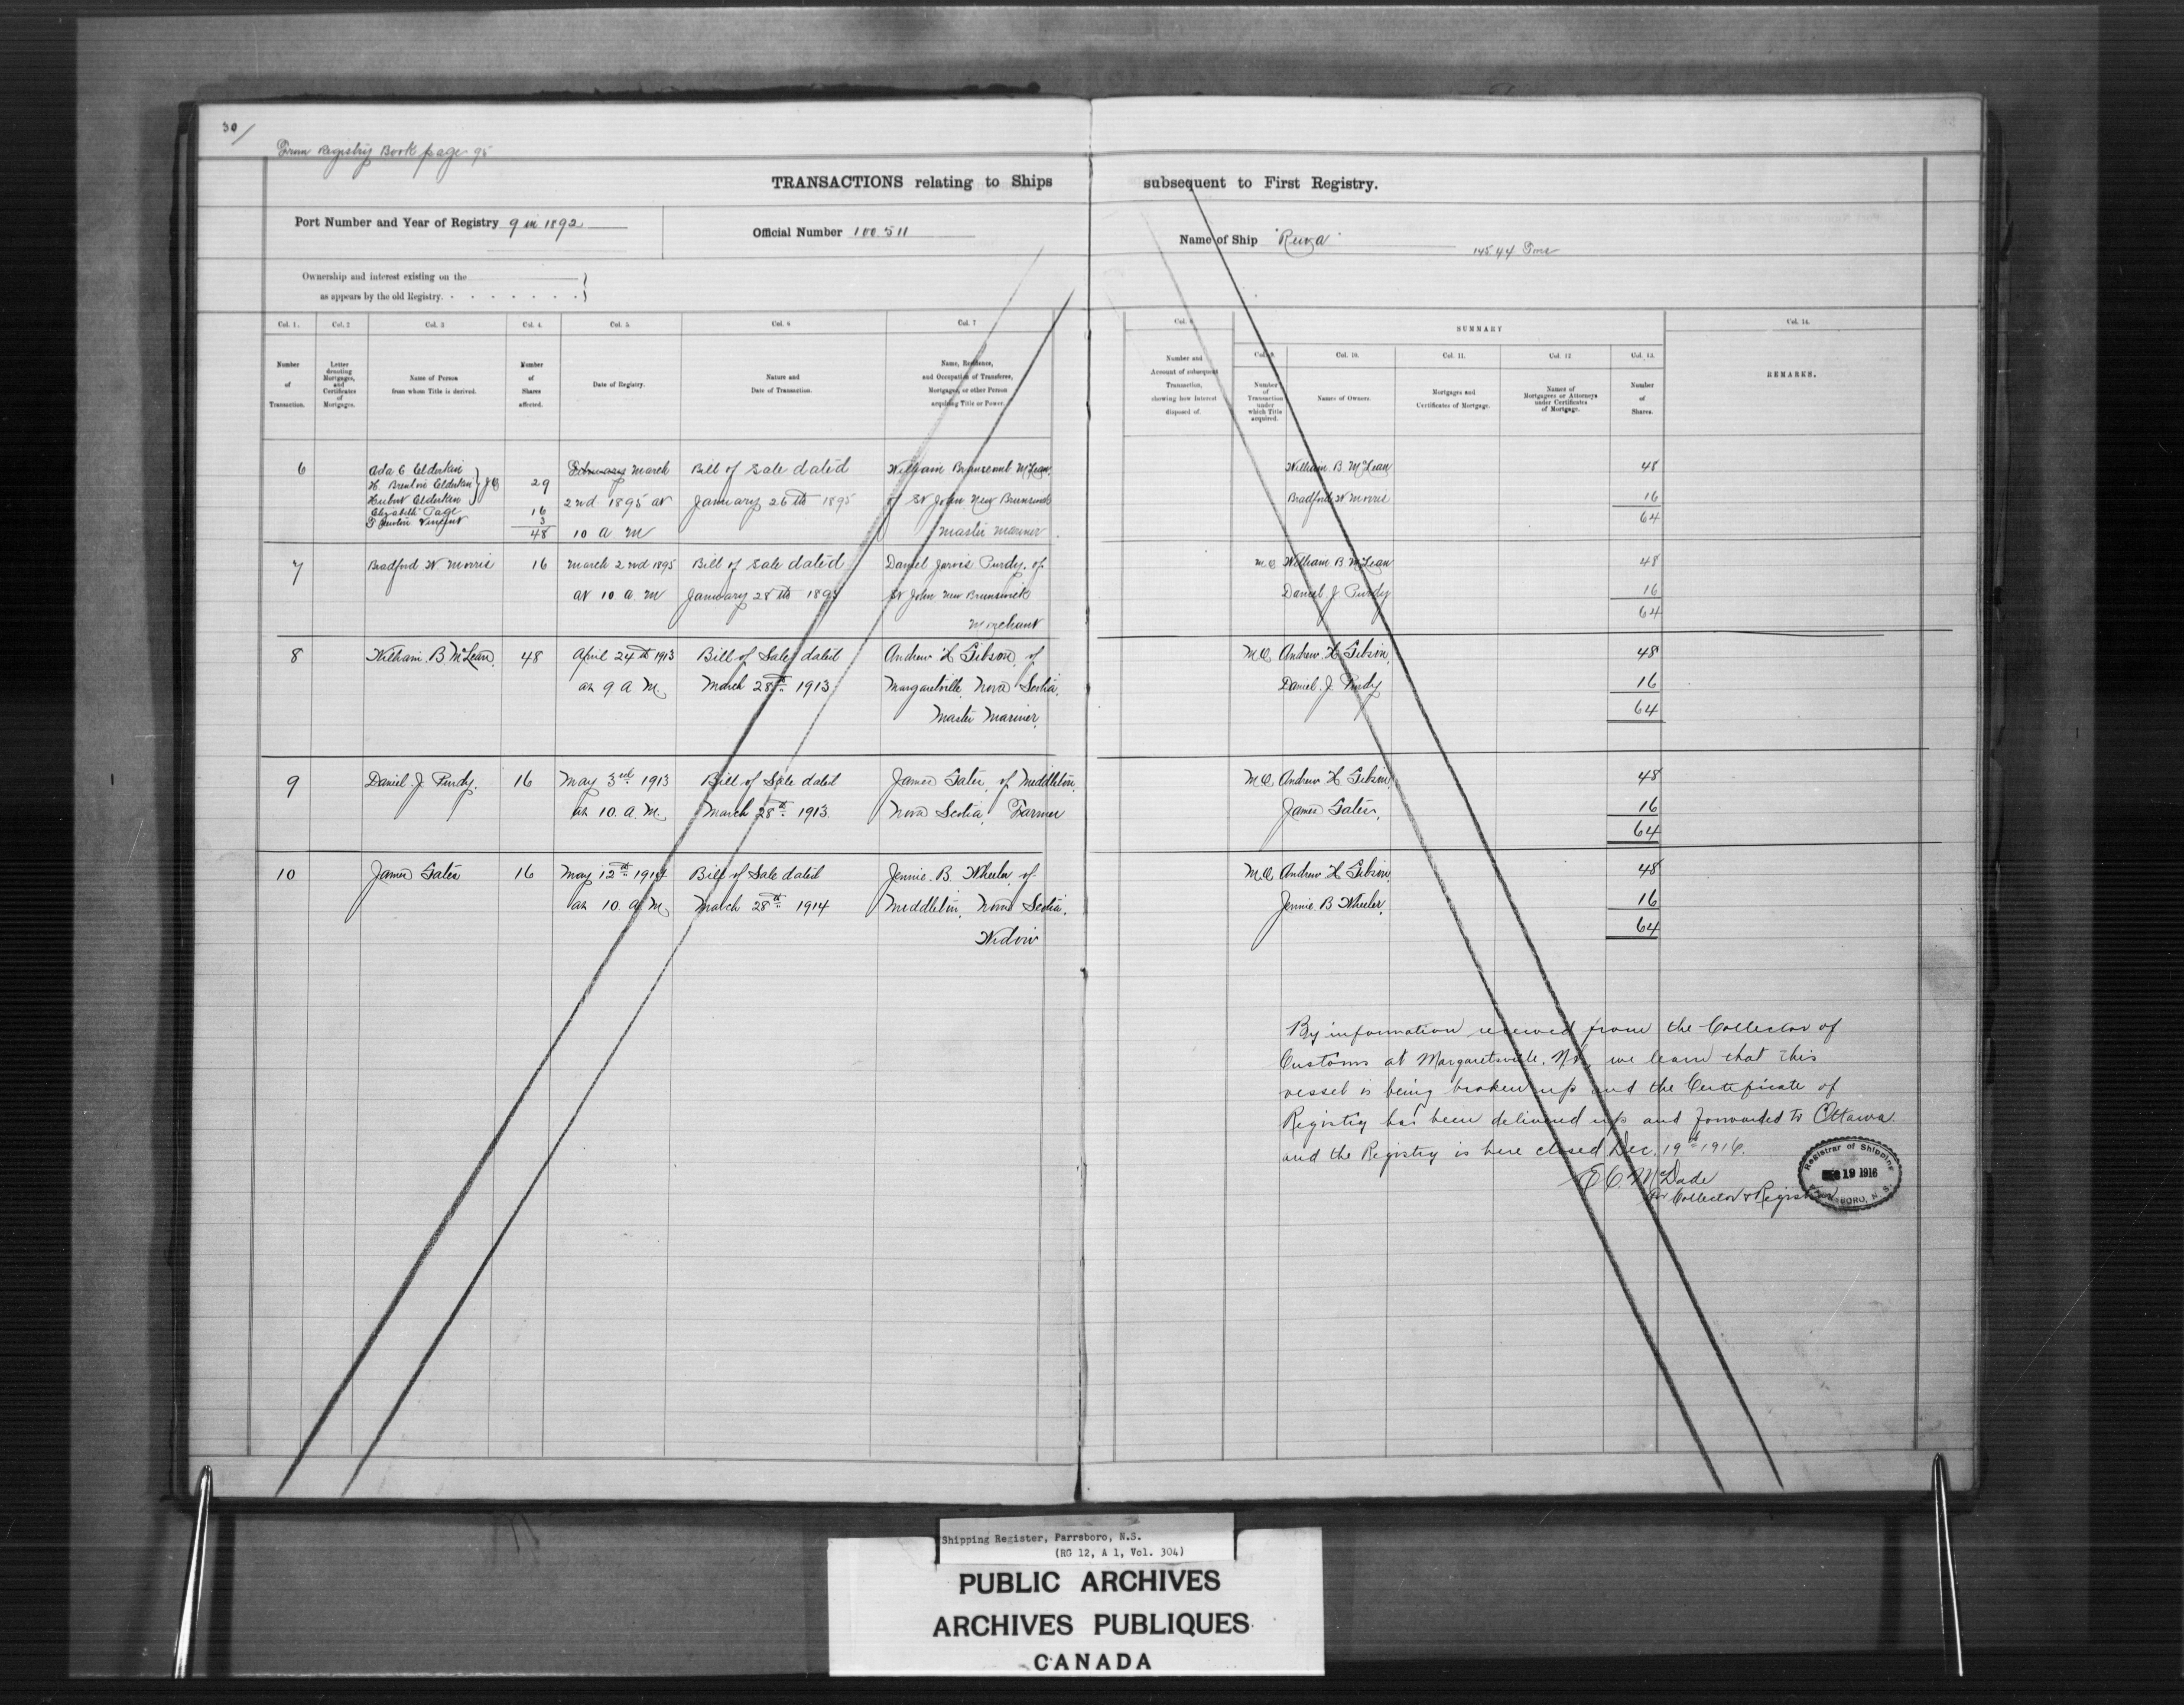 30/
From Registry Book page 95
TRANSACTIONS relating to Ships subsequent to First Registry.
Port Number and Year of Registry 9 in 1892
Official Number 100.511
Name of Ship "Rewa" 145.44 Tons
Ownership and interest existing on the
as appears by the old Registry.
Col. 1. Col. 2 Col. 3 Col. 4. Col. 5. Col. 6 Col. 7
Number of Transaction.
Letter denoting Mortgages, and Certificates of Mortgages.
Name of Person from whom Title is derived.
Number of Shares affected.
Date of Registry.
Nature and Date of Transaction.
Name, Residence, and Occupation of Transferee, Mortgagee, or other Person acquiring Title or Power.
Col. 8
Number and Account of subsequent Transaction, showing how Interest disposed of.
SUMMARY
Col. 9. Col. 10. Col. 11. Col. 12 Col. 13.
Number of Transaction under which Title acquired.
Names of Owners.
Mortgages and Certificates of Mortgage.
Names of Mortgagees or Attorneys under Certificates of Mortgage.
Number of Shares.
Col. 14.
REMARKS.
6
Ada C Elderkin
H. Brenton Elderkin
Herbert Elderkin
J O 29
Elizabeth Page 16
Vincent 3
48
March
2nd 1895 at
10 a. m
Bill of sale dated
January 26th 1895
William Branscomb McLean
of St John New Brunswick
Master Mariner
William B. McLean 48
Bradford W Morris 16
64
7
Bradford W Morris
16
March 2nd 1895
at 10 a. m
Bill of sale dated
January 28th 1895
Daniel Jarvis Purdy. of
St John New Brunswick
Merchant
M.O. William B. McLean 48
Daniel J Purdy 16
64
8
William. B McLean.
48
April 24th 1913
at 9 a M.
Bill of Sale dated
March 28th 1913
Andrew H Gibson, of
Margaretville, Nova Scotia.
Master Mariner,
M.O. Andrew. H Gibson, 48
Daniel. J Purdy 16
64
9
Daniel. J. Purdy.
16
May 3rd 1913
at 10. a. M.
Bill of Sale dated
March 28th 1913.
James Gates, of Middleton,
Nova Scotia, Farmer
M.O. Andrew H Gibson, 48
James Gates, 16
64
10
James Gates
16
May 12th 1914
at 10. a M
Bill of Sale dated
March 28th 1914
Jennie. B Wheeler, of
Middleton, Nova Scotia.
Widow
M.O. Andrew H Gibson, 48
Jennie. B Wheeler, 16
64
By information received from the Collector of
Customs at Margaretsville. N.S. we learn that this
vessel is being broken up and the Certificate of
Registry has been delivered up and forwarded to Ottawa.
and the Registry is here closed Dec. 19th 1916.
E C. McDade
for Collector & Registrar
Registrar of Shipping
DEC 19 1916
PARRSBORO, N. S.
Shipping Register, Parrsboro, N.S.
(RG 12, A 1, Vol. 304)
PUBLIC ARCHIVES
ARCHIVES PUBLIQUES
CANADA